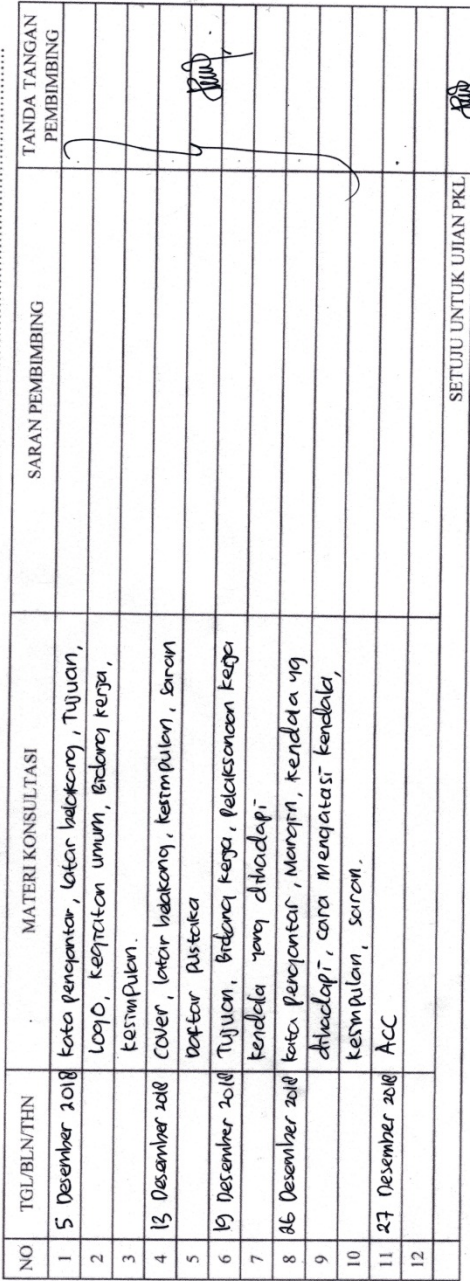 NO TGL/BLN/THN MATERI KONSULTASI SARAN PEMBIMBING TANDA TANGAN PEMBIMBING
1 5 Desember 2018 Kata pengantar, latar belakang, Tujuan,
2 Logo, kegiatan umum, Bidang kerja,
3 kesimpulan.
4 13 Desember 2018 cover, latar belakang, kesimpulan, saran
5 Daftar pustaka
6 19 Desember 2018 Tujuan, Bidang kerja, pelaksanaan kerja
7 kendala yang dihadapi
8 26 Desember 2018 kata pengantar, Margin, kendala yg
9 dihadapi, cara mengatasi kendala,
10 kesimpulan, saran.
11 27 Desember 2018 ACC
12
SETUJU UNTUK UJIAN PKL